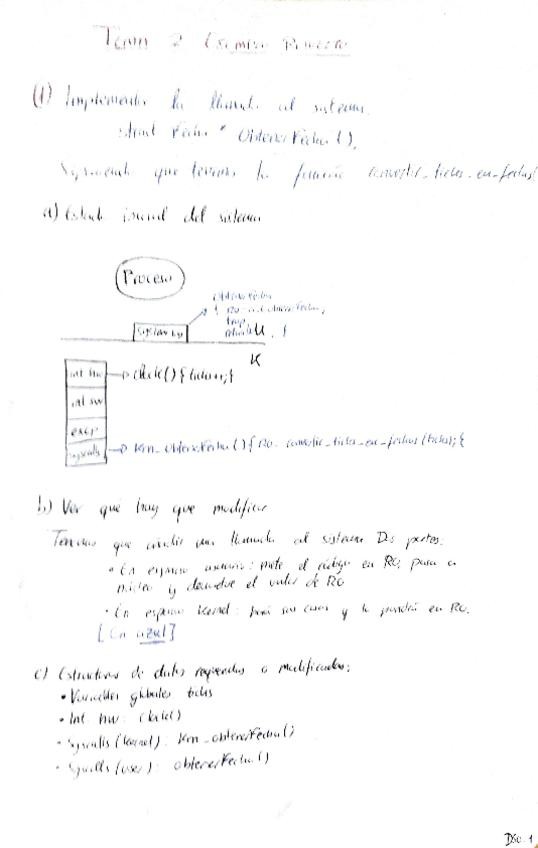 Tema 2
(1) Implementar la llamada al sistema
struct Fecha * ObtenerFecha (),
que tenemos la función convertir_ticks_en_fechas(
a) Estado inicial del sistema
Proceso
ObtenerFecha
trap
U
K
int hw
clock() { ticks++; {
int sw
excp
syscalls
Krn_obtenerFecha () { R0 = convertir_ticks_en_fechas (ticks); {
b) Ver qué hay que modificar
Tenemos que añadir una llamada al sistema Dos partes:
• En espacio usuario: mete el código en R0, pasa a
núcleo y devuelve el valor de R0
• En espacio Kernel: hará sus cosas y lo pondrá en R0.
[En azul]
c) Estructuras de datos requeridas o modificadas:
• Variables globales ticks
• Int. hw: clock()
• Syscalls (kernel): Krn_obtenerFecha()
• Syscalls (user): obtenerFecha()
DSO-1